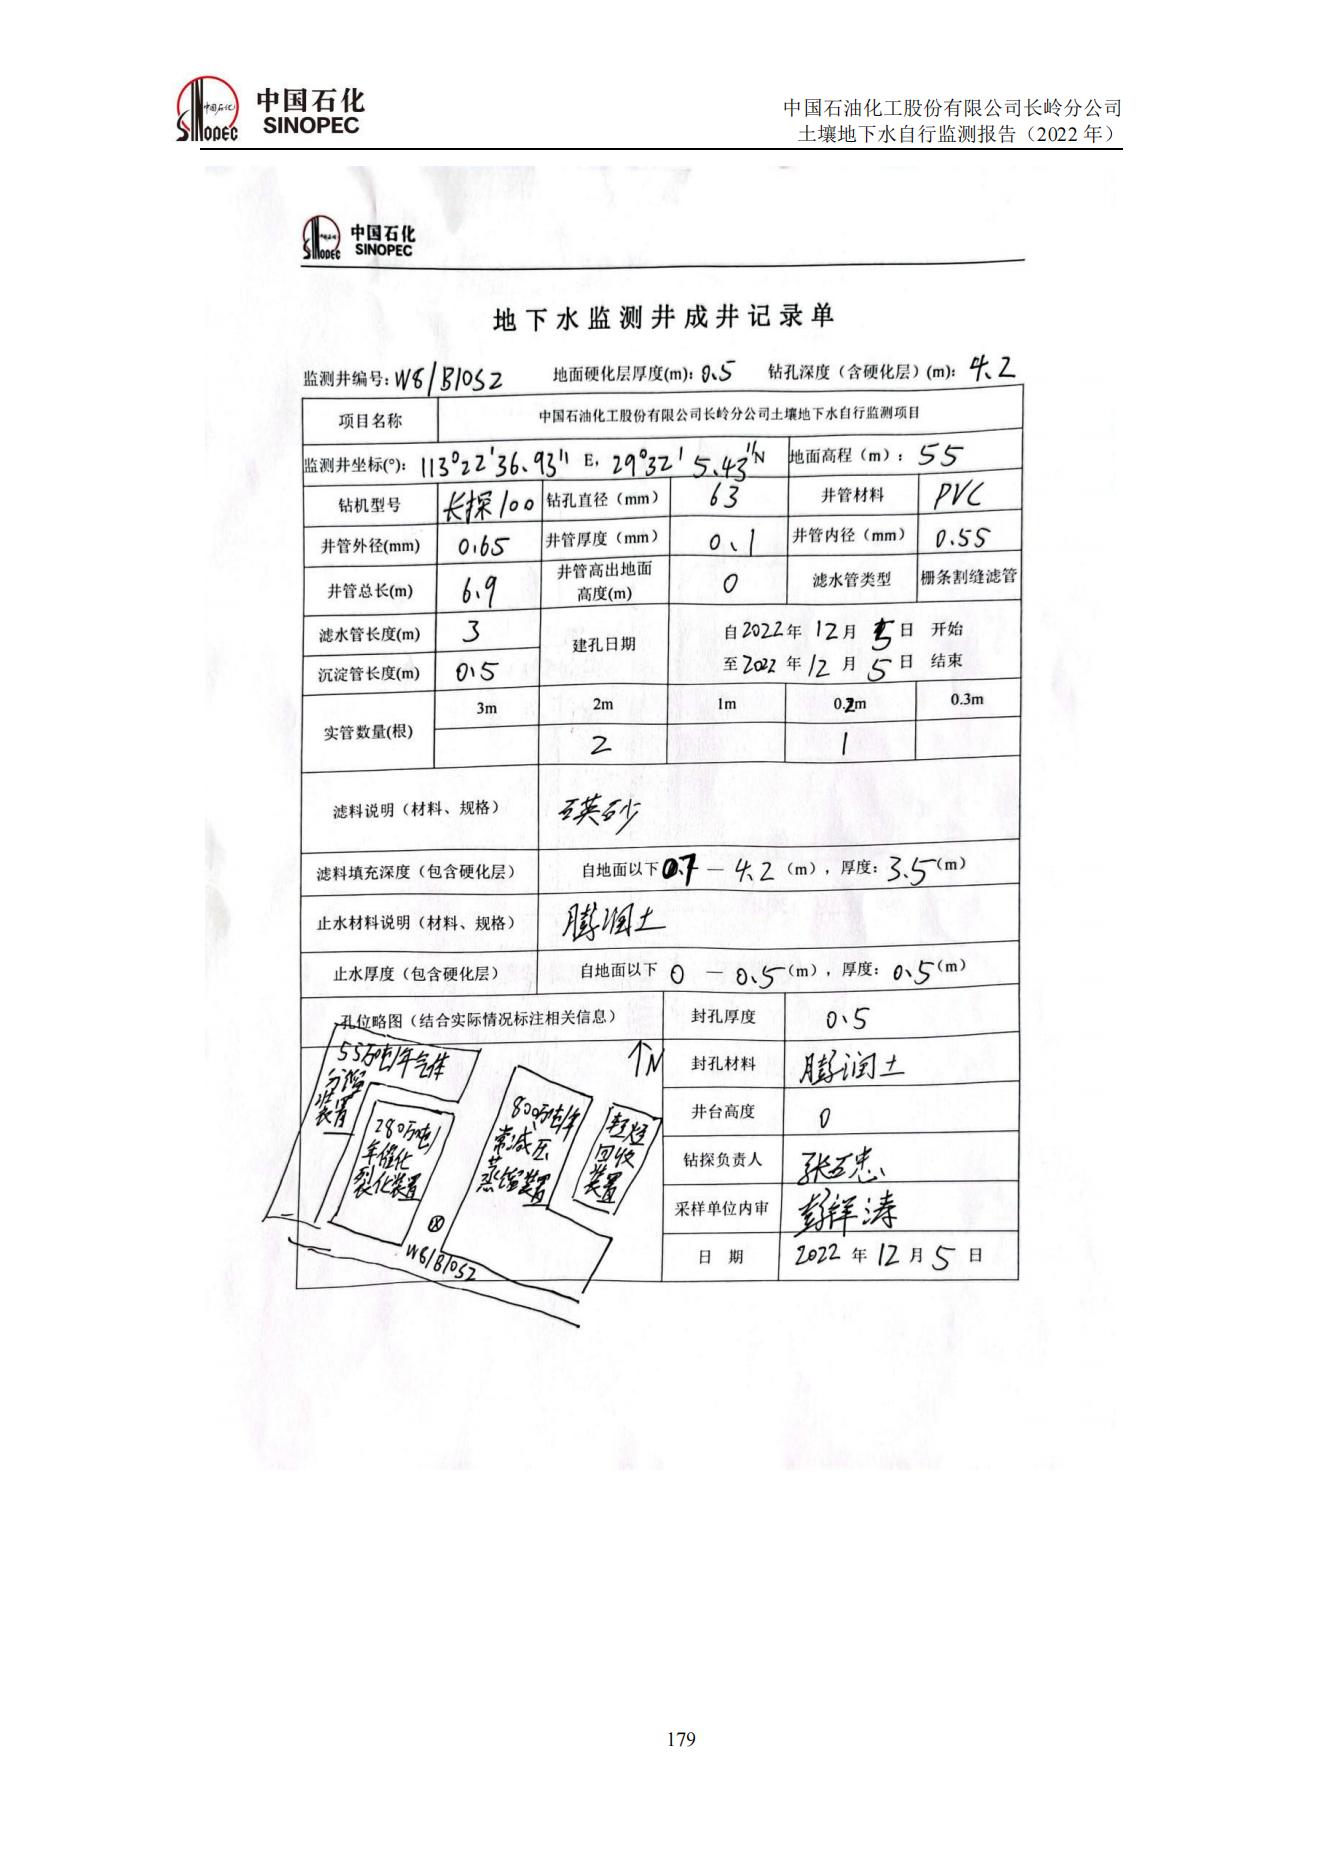 中国石化
SINOPEC
中国石油化工股份有限公司长岭分公司
土壤地下水自行监测报告（2022 年）
中国石化
SINOPEC
地下水监测井成井记录单
监测井编号: W8/B10S2 地面硬化层厚度(m): 0.5 钻孔深度（含硬化层）(m): 4.2
项目名称 中国石油化工股份有限公司长岭分公司土壤地下水自行监测项目
监测井坐标(°): 113°22'36.93" E, 29°32'5.43"N 地面高程（m）: 55
钻机型号 长探100 钻孔直径（mm） 63 井管材料 PVC
井管外径(mm) 0.65 井管厚度（mm） 0.1 井管内径（mm） 0.55
井管总长(m) 6.9 井管高出地面高度(m) 0 滤水管类型 栅条割缝滤管
滤水管长度(m) 3 建孔日期 自2022年 12月 5日 开始
沉淀管长度(m) 0.5 至2022 年 12 月 5日 结束
实管数量(根) 3m 2m 1m 0.2m 0.3m
2 1
滤料说明（材料、规格） 石英砂
滤料填充深度（包含硬化层） 自地面以下 0.7 — 4.2（m），厚度: 3.5(m)
止水材料说明（材料、规格） 膨润土
止水厚度（包含硬化层） 自地面以下 0 — 0.5（m），厚度: 0.5(m)
孔位略图（结合实际情况标注相关信息） 封孔厚度 0.5
封孔材料 膨润土
井台高度 0
钻探负责人
采样单位内审 彭祥涛
日 期 2022 年 12 月 5 日
↑N
55万吨/年气体
分馏
装置
280万吨/
年催化
裂化装置
800万吨/年
常减压
蒸馏装置
轻烃
回收
装置
W8/B10S2
179